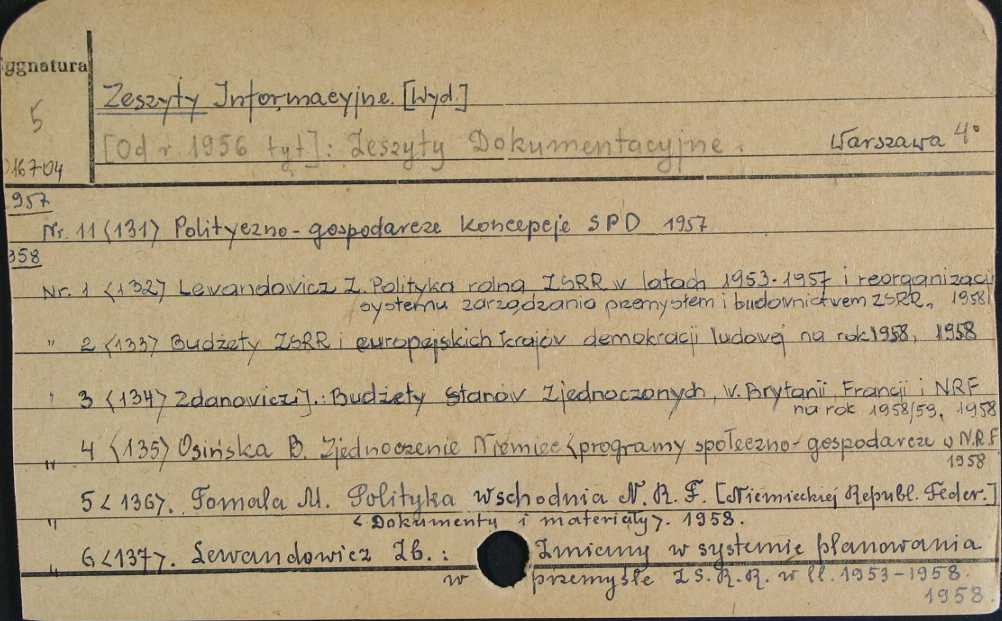 ygnatura
Zeszyty Informacyjne. [Wyd.]
5
[Od r. 1956 tyt]: Zeszyty Dokumentacyjne.
Warszawa 4°
16704
957
Nr. 11 <131> Polityczno-gospodarcze koncepcje SPD 1957
958
Nr. 1 <132> Lewandowicz Z. Polityka rolna ZSRR w latach 1953-1957 i reorganizacja
systemu zarządzania przemysłem i budownictwem ZSRR, 1958
" 2 <133> Budżety ZSRR i europejskich krajów demokracji ludowej na rok 1958, 1958
" 3 <134> Zdanowicz J.: Budżety Stanów Zjednoczonych, W. Brytanii, Francji i NRF
na rok 1958/59, 1958
" 4 <135> Osińska B. Zjednoczenie Niemiec <programy społeczno-gospodarcze w N.R.F.
1958
" 5 <136>. Tomala M. Polityka wschodnia N.R.F. [Niemieckiej Republ. Feder.]
<Dokumenty i materiały>. 1958.
" 6 <137>. Lewandowicz Zb.: Zmiany w systemie planowania
w przemyśle Z.S.R.R. w ll. 1953-1958.
1958.